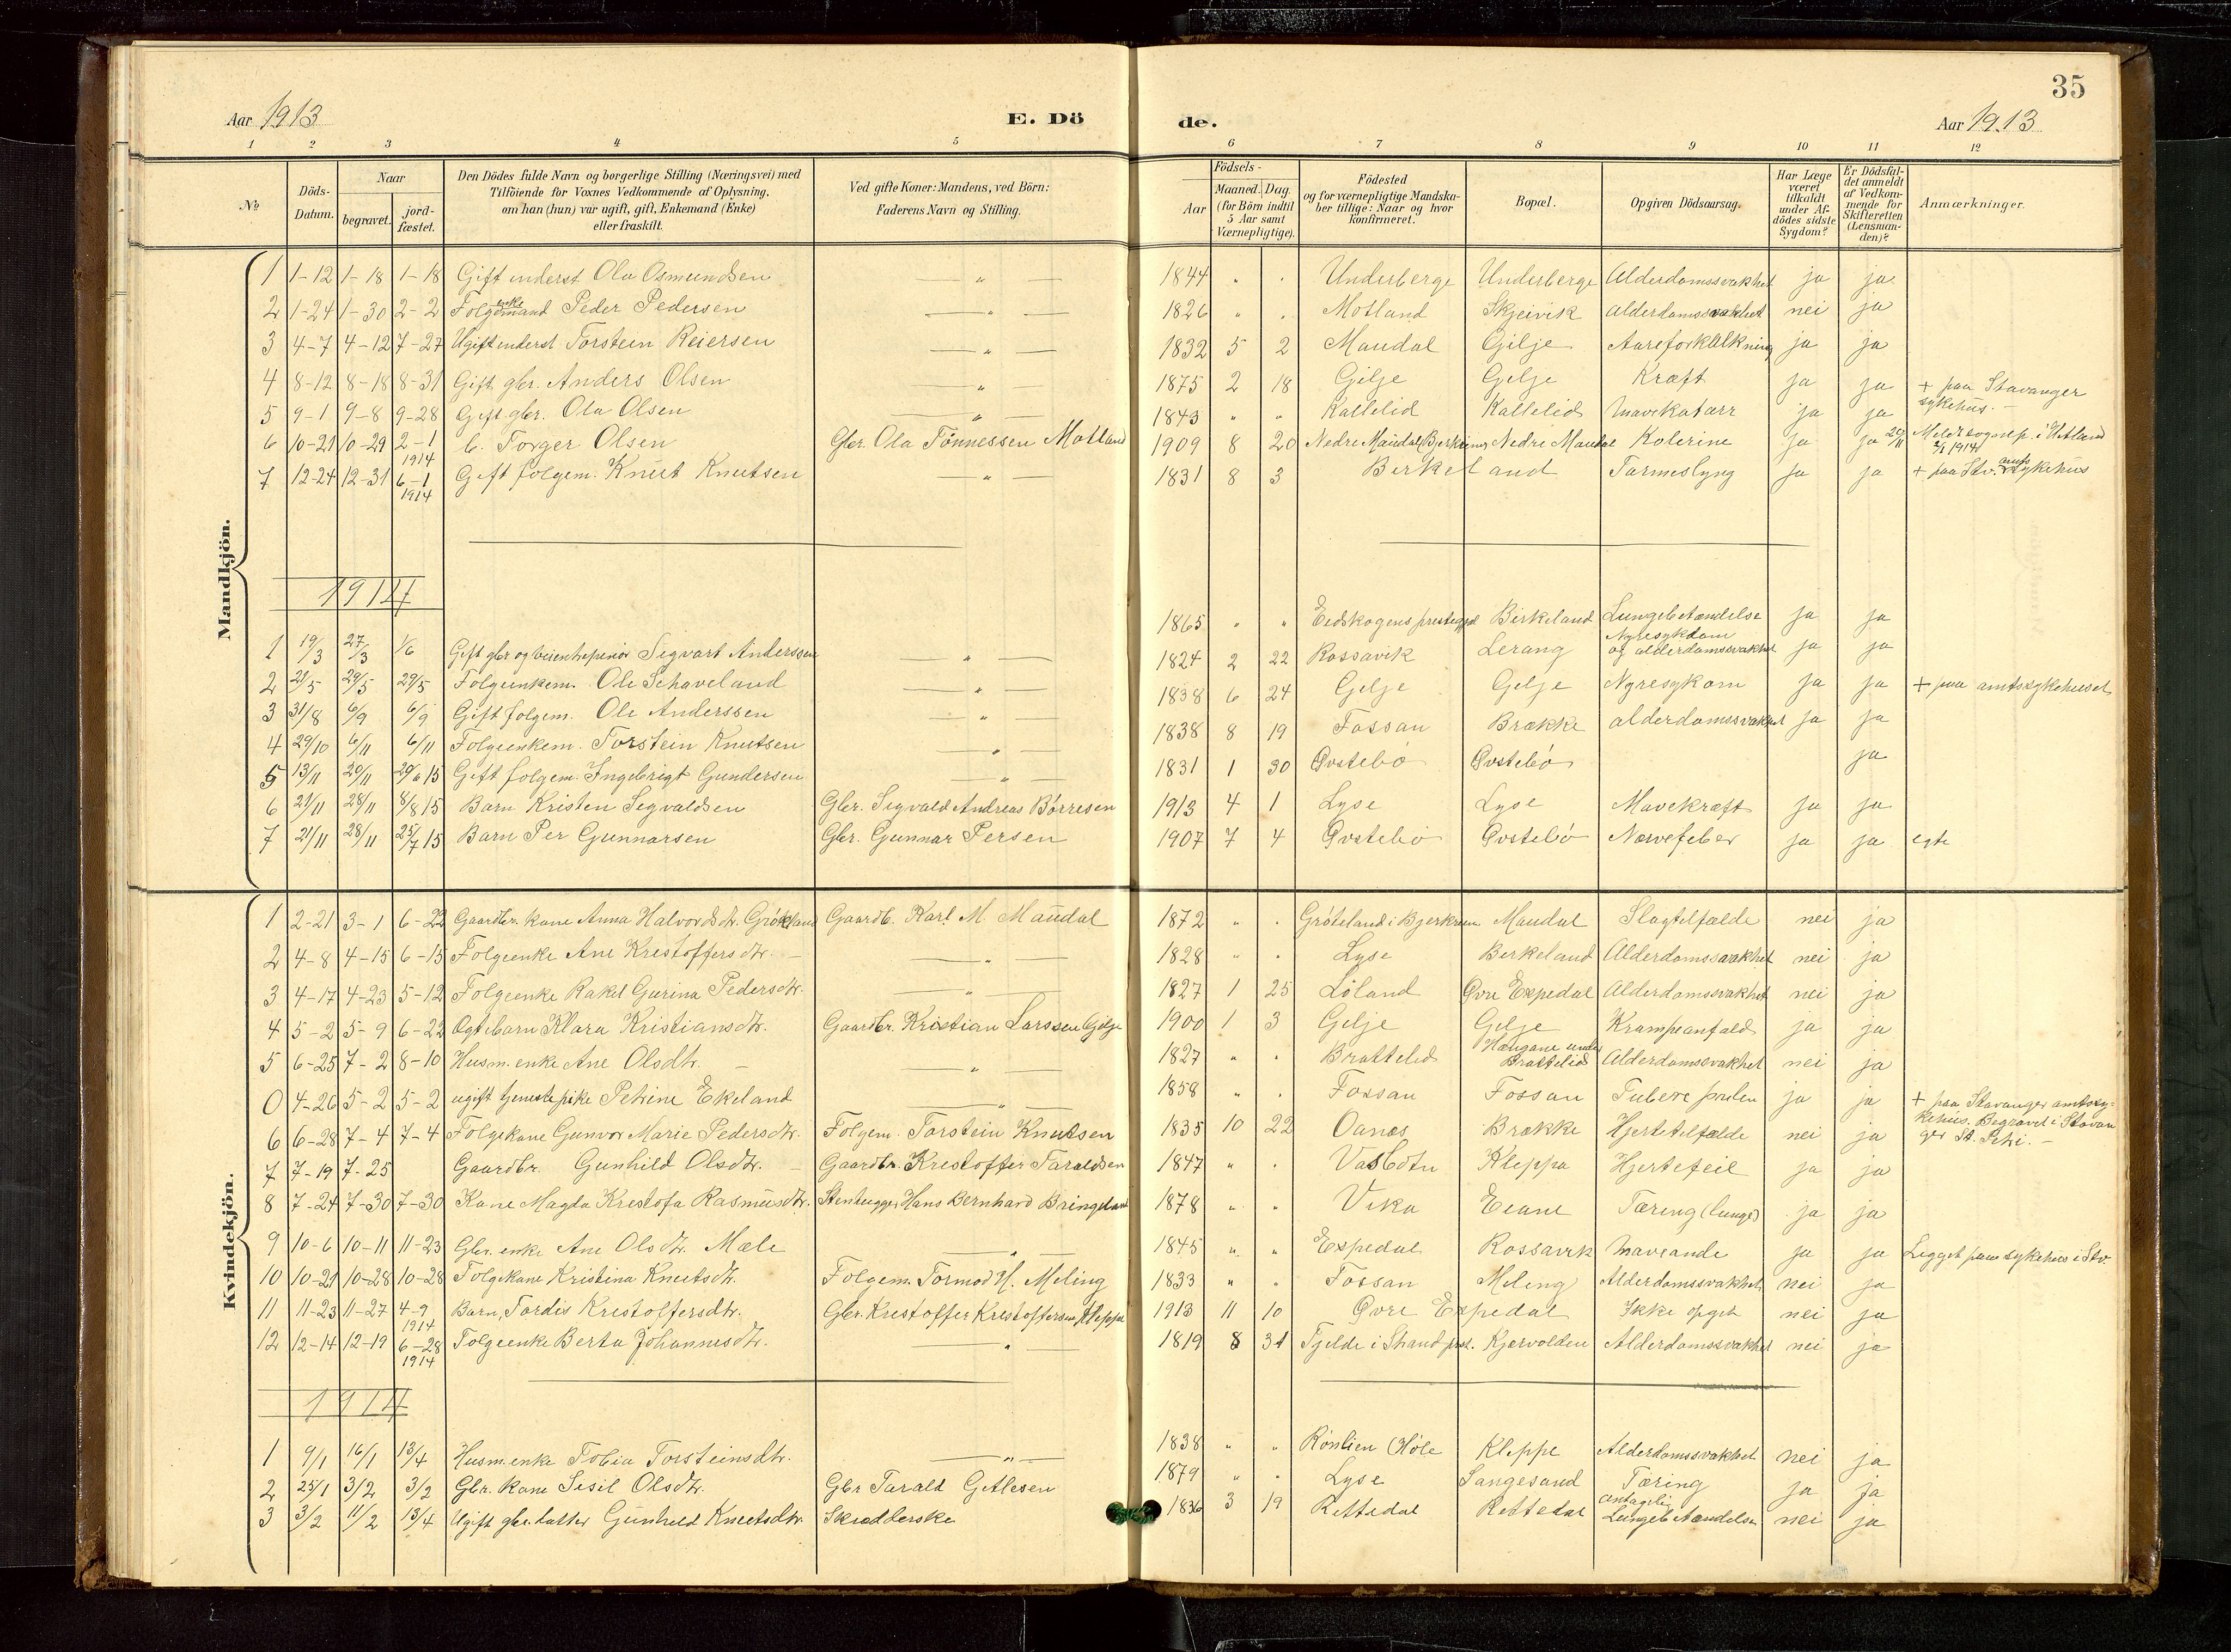 35
Aar 1913 E. Dö de. Aar 1913
1 2 3 4 5 6 7 8 9 10 11 12
No
Döds-Datum.
Naar
begravet.
jord-fæstet.
Den Dödes fulde Navn og borgerlige Stilling (Næringsvei) med
Tilföiende for Voxnes Vedkommende af Oplysning,
om han (hun) var ugift, gift, Enkemand (Enke)
eller fraskilt.
Ved gifte Koner: Mandens, ved Börn:
Faderens Navn og Stilling.
Födsels-
Aar
Maaned. Dag.
(for Börn indtil
5 Aar samt
Værnepligtige).
Födested
og for værnepligtige Mandska-
ber tillige: Naar og hvor
konfirmeret.
Bopæl.
Opgiven Dödsaarsag.
Har Læge
været
tilkaldt
under Af-
dödes sidste
Sygdom?
Er Dödsfal-
det anmeldt
af Vedkom-
mende for
Skifteretten
(Lensman-
den)?
Anmærkninger.
Mandkjön.
1 1-12 1-18 1-18 Gift inderst Ola Osmundsen — " — 1844 " " Underberge Underberge Alderdomssvakhet ja ja
2 1-24 1-30 2-2 Folgeenkemand Peder Pedersen — " — 1826 " " Motland Skjeivik alderdomssvakhet nei ja
3 4-7 4-12 7-27 Ugift inderst Torstein Reiersen — " — 1832 5 2 Maudal Gilje Aareforkalkning ja ja
4 8-12 8-18 8-31 Gift gbr. Anders Olsen — " — 1875 2 18 Gilje Gilje Kræft ja ja + paa Stavanger sykehus. —
5 9-1 9-8 9-28 Gift gbr. Ola Olsen — " — 1843 " " Kallelid Kallelid Mavekatarr ja ja
6 10-21 10-29 2-1 1914 b. Torger Olsen Gbr. Ola Tønnessen Motland 1909 8 20 Nedre Maudal, Bjerkreim Nedre Maudal Kolerine ja ja 20/11 Meldt sognep. i Hetland 2/1 1914
7 12-24 12-31 6-1 1914 Gift folgem. Knut Knutsen — " — 1831 8 3 Birkeland Tarmslyng ja ja + paa Stv. amts sykehus
1914
1 19/3 27/3 1/6 Gift gbr og Sigvart Anderssen — " — 1865 " " Eidskogens prestegjeld Birkeland Lungebetændelse ja ja
2 21/5 29/5 29/5 Folgeenkem. Ole Schaveland — " — 1824 2 22 Rossavik Lerang Nyresykdom og alderdomssvakhet ja ja
3 31/8 6/9 6/9 Gift folgem. Ole Anderssen — " — 1838 6 24 Gilje Gilje Nyresykom ja ja + paa amtssykehuset
4 29/10 6/11 6/11 Folgeenkem. Torstein Knutsen — " — 1838 8 19 Fossan Brække alderdomssvakhet ja ja
5 13/11 20/11 20/6 15 Gift folgem. Ingebrigt Gundersen — " — 1831 1 30 Øvstebø Øvstebø ja
6 21/11 28/11 8/8 15 Barn Kristen Sigvaldsen Gbr. Sigvald Andreas Børresen 1913 4 1 Lyse Lyse Mavekræft ja ja
7 21/11 28/11 25/7 15 Barn Per Gunnarsen Gbr. Gunnar Persen 1907 7 4 Øvstebø Øvstebø Nervefeber ja ja egte
Kvindekjön.
1 2-21 3-1 6-22 Gaardbr. kone Anna Halvordsdtr. Gaardb. Karl M Maudal 1872 " " Grøteland i Bjerkreim Maudal Slagtilfælde nei ja
2 4-8 4-15 6-15 Folgeenke Ane Kristoffersdtr. — " — 1828 " " Lyse Birkeland Alderdomssvakhet nei ja
3 4-17 4-23 5-12 Folgeenke Rakel Gurina Pedersdtr. — " — 1827 1 25 Löland Øvre Espedal Alderdomssvakhet nei ja
4 5-2 5-9 6-22 Egtebarn Klara Kristiansdtr. Gaardbr. Kristian Larssen Gilje 1900 1 3 Gilje Gilje Krampeanfald ja ja
5 6-25 7-2 8-10 Husm. enke Ane Olsdtr. — " — 1827 " " Brattelid Haugane under Brattelid Alderdomssvakhet nei ja
0 4-26 5-2 5-2 ugift tjenestepike Petrine Ekeland — " — 1858 " " Fossan Fossan ja ja + paa Stavanger amtssy-
kehus. Begravet i Stavan
ger St. Petri. —
6 6-28 7-4 7-4 Folgekone Gunvor Marie Pedersdtr. Folgem. Torstein Knutsen 1835 10 22 Oanes Brække Hjertetilfælde nei ja
7 7-19 7-25 Gaardbr. Gunhild Olsdtr. Gaardbr. Kristoffer Taraldsen 1847 " " Vasbotn Kleppa Hjertefeil ja ja
8 7-24 7-30 7-30 Kone Magda Kristofa Rasmusdtr. Stenhugger Hans Bernhard Bringeland 1878 " " Vika Eiane Tæring (lunge) ja ja
9 10-6 10-11 11-23 Gbr. enke Ane Olsdtr. Mæle — " — 1845 " " Espedal Rossavik Maveonde ja ja Ligget paa sykehus i Stv.
10 10-21 10-28 10-28 Folgekone Kristina Knutsdtr. Folgem. Tormod H. Meling 1833 " " Fossan Meling Alderdomssvakhet nei ja
11 11-23 11-27 4-9 1914 Barn, Tordis Kristoffersdtr. Gbr. Kristoffer Kristoffersen Kleppa 1913 11 10 Øvre Espedal Ikke opgit nei ja
12 12-14 12-19 6-28 1914 Folgeenke Berta Johannesdtr. — " — 1819 8 31 Fjelde i Strand prst. Kjervolden Alderdomssvakhet nei ja
1914
1 9/1 16/1 13/4 Husm. enke Tobia Torsteinsdtr. — " — 1838 " " Rønlien (Høle Kleppe Alderdomssvakhet nei ja
2 25/1 3/2 3/2 Gbr. kone Sisil Olsdtr. Gbr Tarald Gitlesen 1879 " " Lyse Sangesand Tæring ja ja
3 3/2 11/2 13/4 Ugift gbr. datter Gunhild Knutsdtr. Skrædderske 1836 3 19 Rettedal Rettedal antagelig Lungebetændelse nei ja